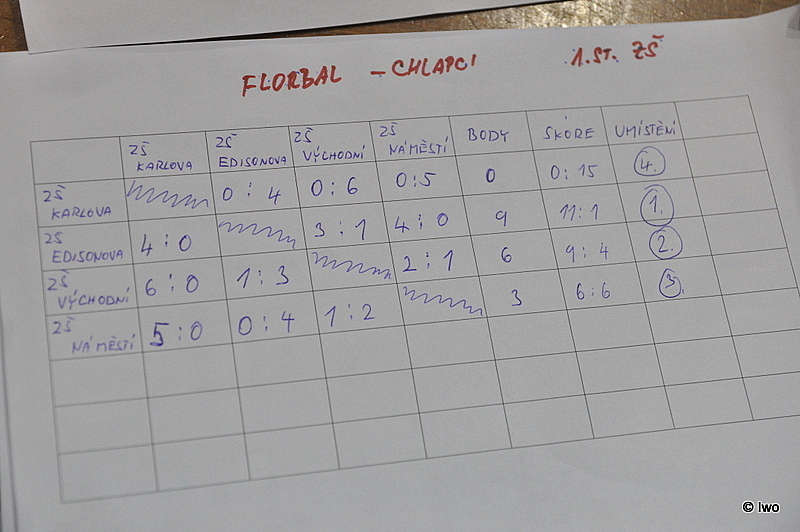 FLORBAL - CHLAPCI 1.ST. ZŠ
ZŠ KARLOVA ZŠ EDISONOVA ZŠ VÝCHODNÍ ZŠ NÁMĚSTÍ BODY SKÓRE UMÍSTĚNÍ
ZŠ KARLOVA 0:4 0:6 0:5 0 0:15 4.
ZŠ EDISONOVA 4:0 3:1 4:0 9 11:1 1.
ZŠ VÝCHODNÍ 6:0 1:3 2:1 6 9:4 2.
ZŠ NÁMĚSTÍ 5:0 0:4 1:2 3 6:6 3.
© Iwo